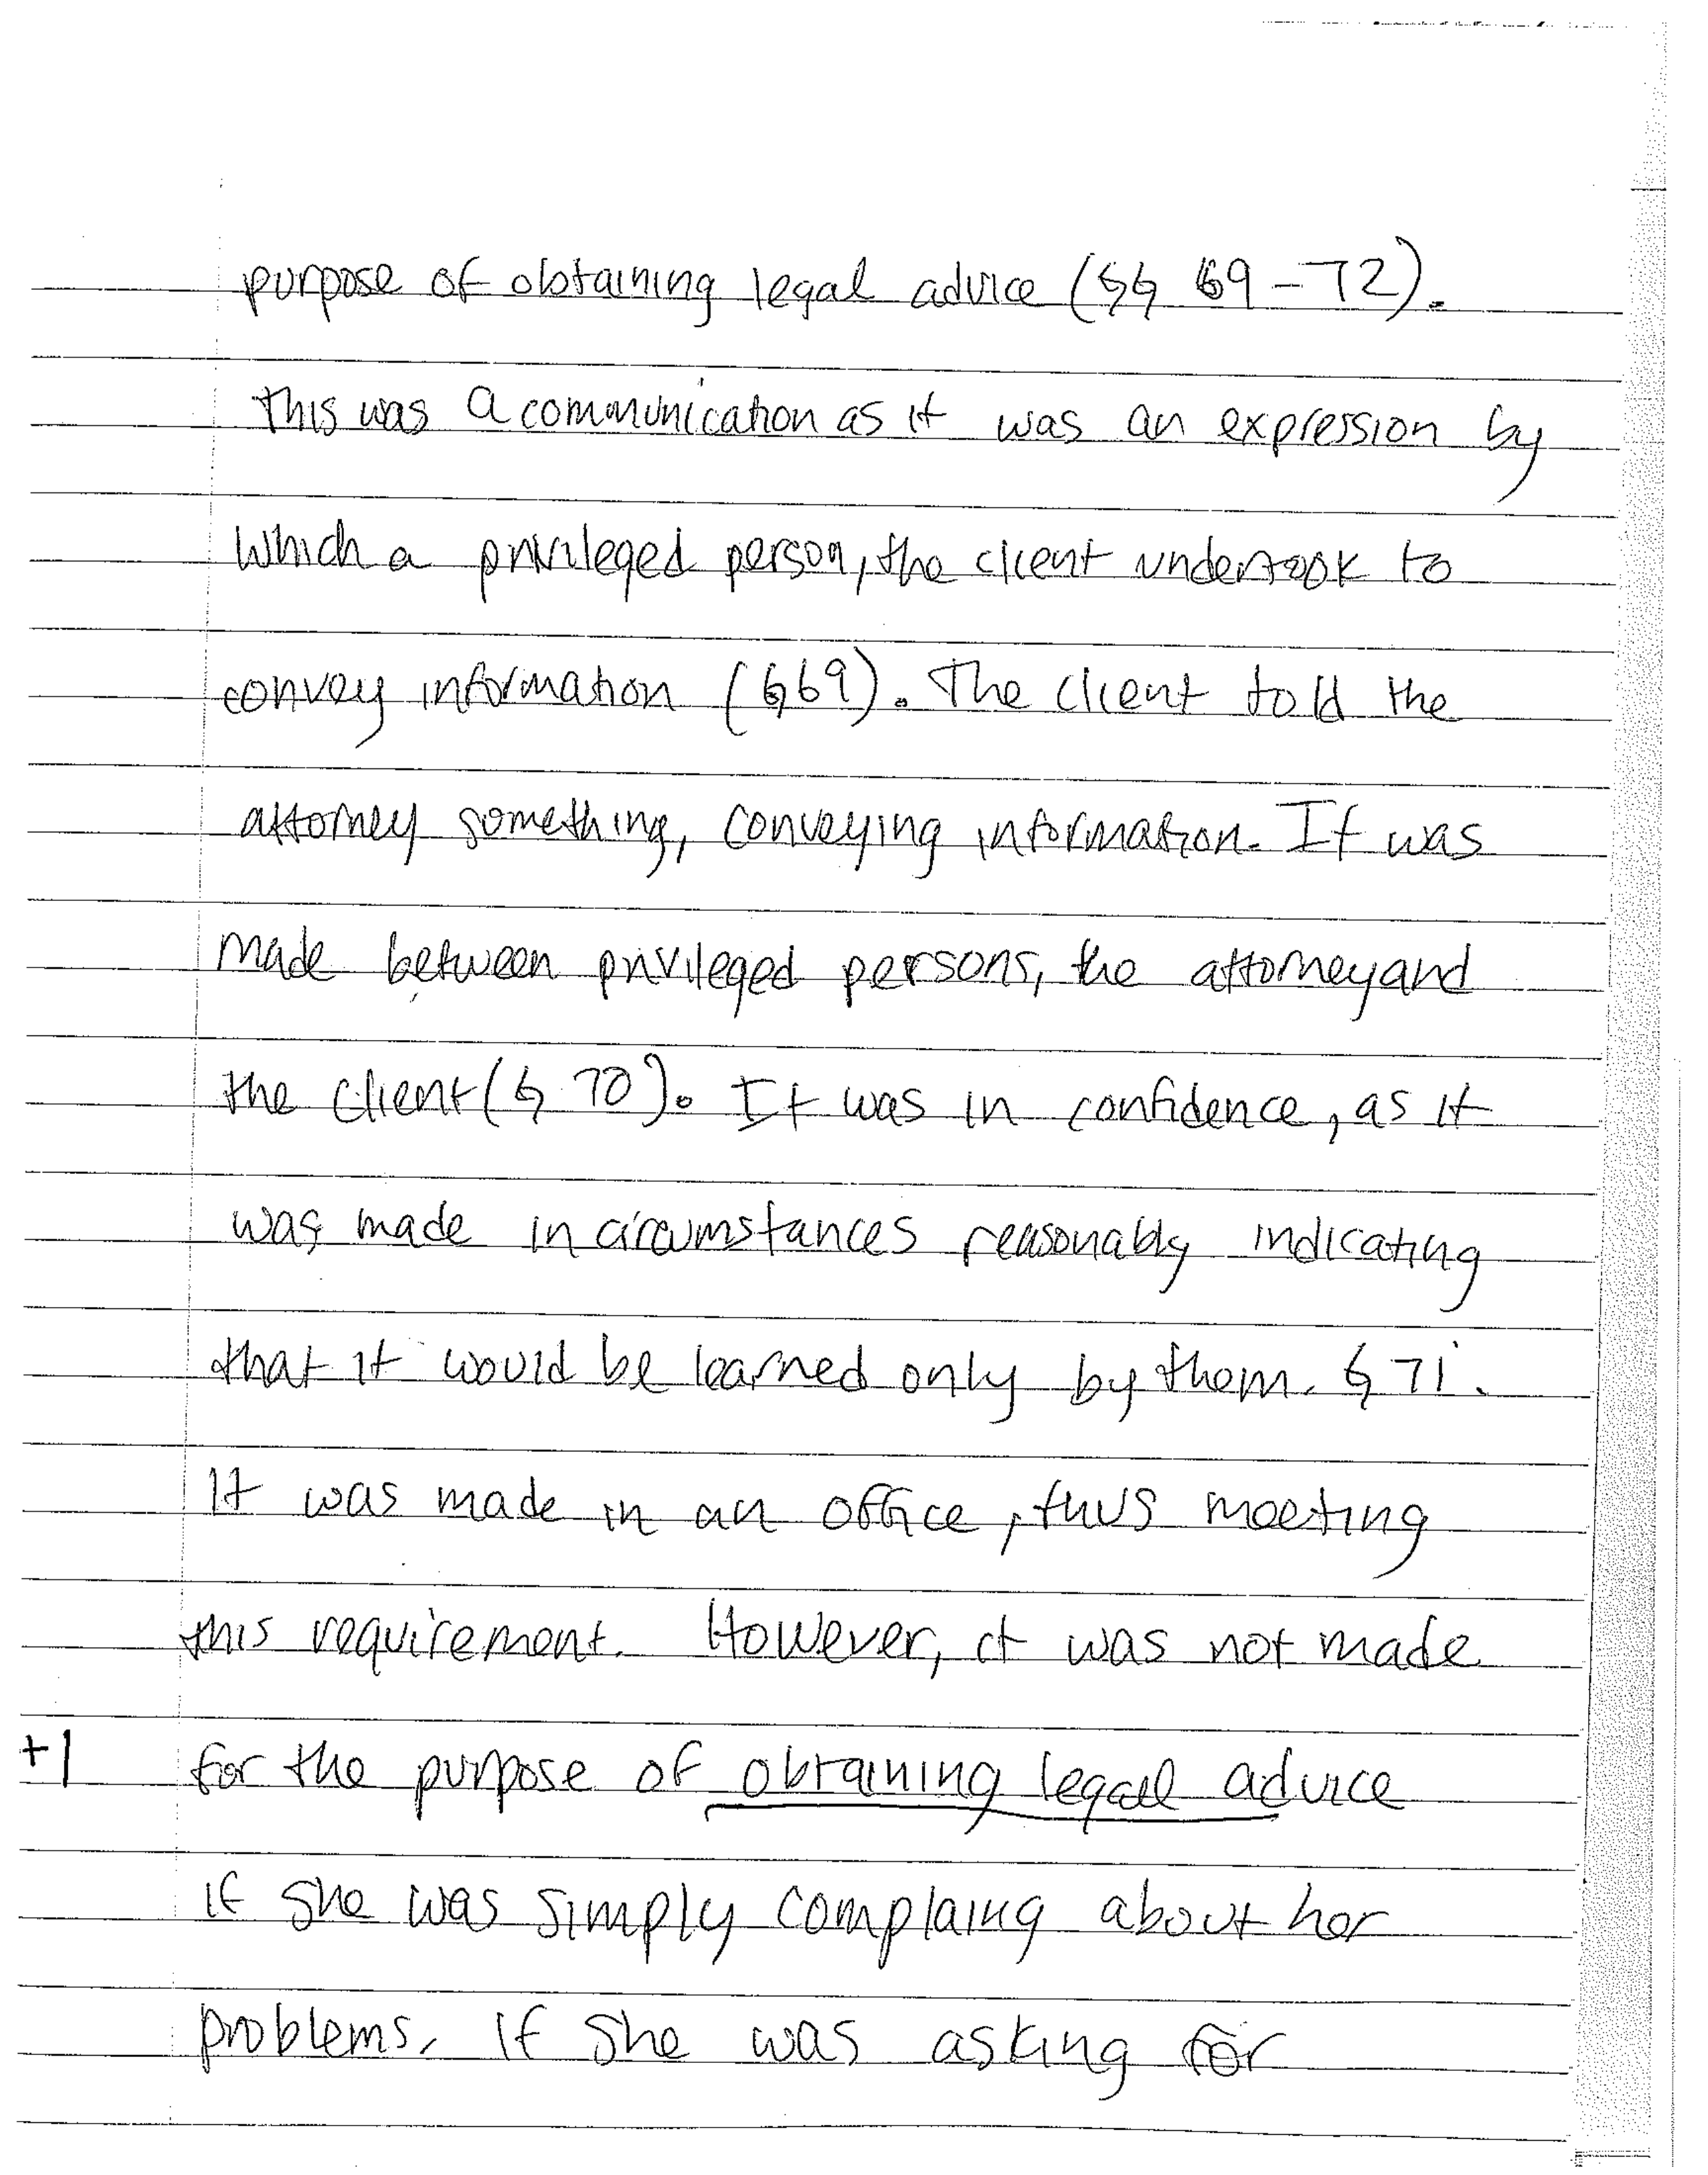 purpose of obtaining legal advice (§§ 69-72).
This was a communication as it was an expression by
which a privileged person, the client undertook to
convey information (§69). The client told the
attorney something, conveying information. It was
made between privileged persons, the attorney and
the client (§ 70). It was in confidence, as it
was made in circumstances reasonably indicating
that it would be learned only by them. § 71.
It was made in an office, thus meeting
this requirement. However, it was not made
+1 for the purpose of obtaining legal advice
if she was simply complaing about her
problems. If she was asking for